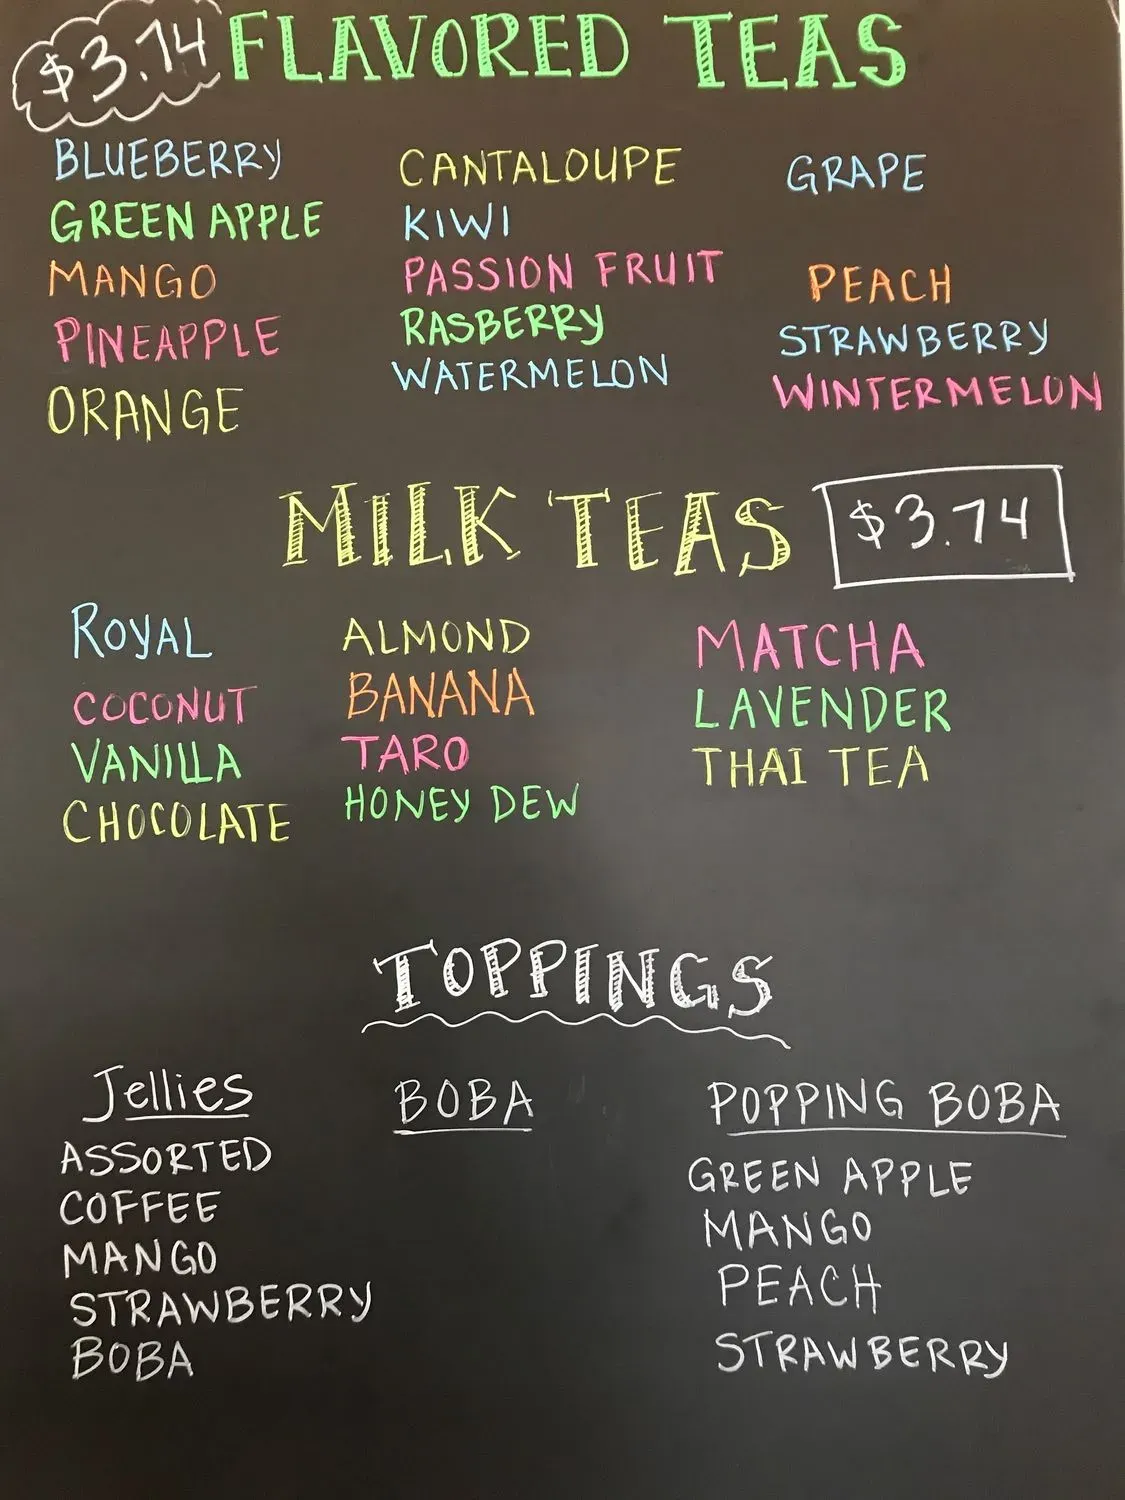 $3.74 FLAVORED TEAS
BLUEBERRY
GREEN APPLE
MANGO
PINEAPPLE
ORANGE
CANTALOUPE
KIWI
PASSION FRUIT
RASBERRY
WATERMELON
GRAPE
PEACH
STRAWBERRY
WINTERMELON
MILK TEAS $3.74
ROYAL
COCONUT
VANILLA
CHOCOLATE
ALMOND
BANANA
TARO
HONEY DEW
MATCHA
LAVENDER
THAI TEA
TOPPINGS
Jellies
ASSORTED
COFFEE
MANGO
STRAWBERRY
BOBA
BOBA
POPPING BOBA
GREEN APPLE
MANGO
PEACH
STRAWBERRY